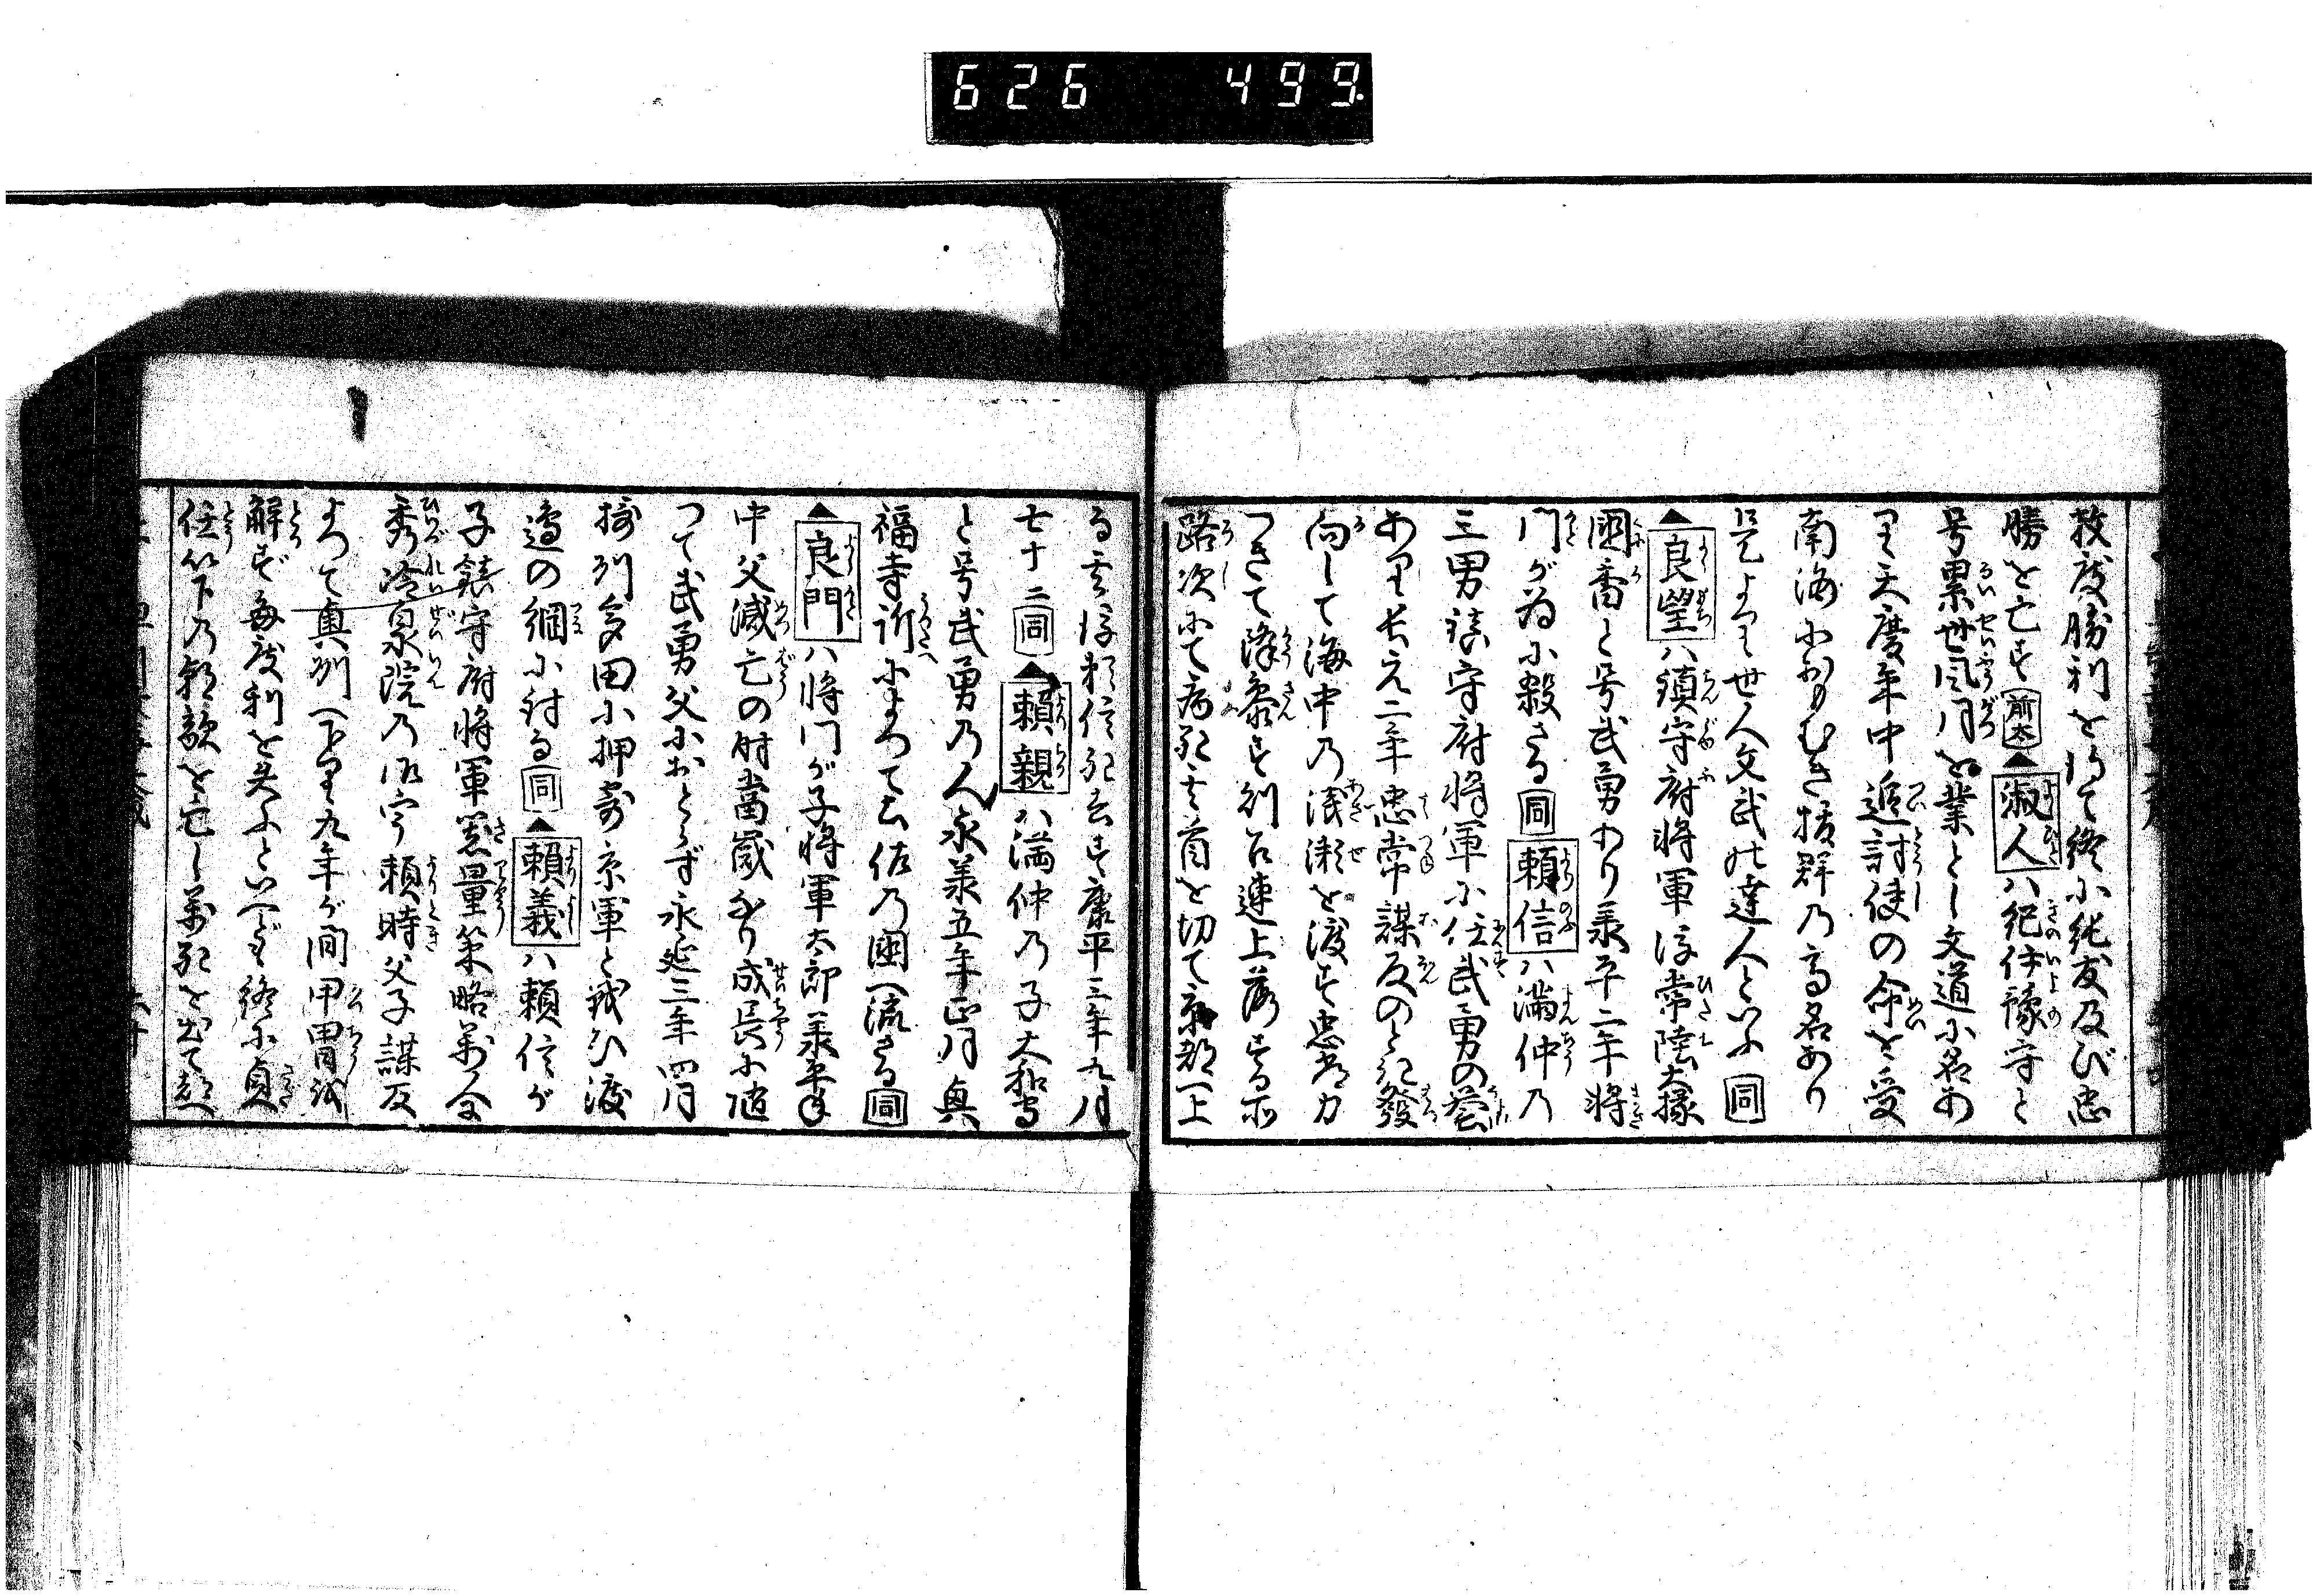 626 499.
数度勝利を得て終に純友及び忠
勝を亡す 前太 ▲淑人ハ紀伊豫守と
号累世風月を業とし文道に名あ
り天慶年中追討使の命を受
南海におもむき抜群乃高名あり
是よつて世人文武の達人といふ 同
▲良望ハ鎮守府将軍 常陸大掾
國香と号武勇あり承平二年将
門が為に殺さる 同 頼信ハ満仲乃
三男鎮守府将軍に任武勇の誉
あり長元二年忠常謀反のとき發
向して海中乃浅瀬を渡す忠常力
つきて降参す 連上落する所
路次にて病死 首を切て京都へ上
る 頼信死去す康平三年九月
七十二 同 ▲頼親ハ満仲乃子大和守
と号武勇乃人永承五年正月興
福寺訴によつて土佐乃國へ流さる 同
▲良門ハ将門が子将軍太郎承平年
中父滅亡の時當歳なり成長に随
つて武勇父におとらず永延三年四月
摂州多田に押寄京軍と戦ひ渡
邉の綱に討る 同 ▲頼義ハ頼信が
子鎮守府将軍器量策略萬人
秀冷泉院乃御宇頼時父子謀反
よつて奥州へ下り九年が間甲冑を
解ず毎度利を失ふといへども終に貞
任以下乃朝敵を亡し 都へ